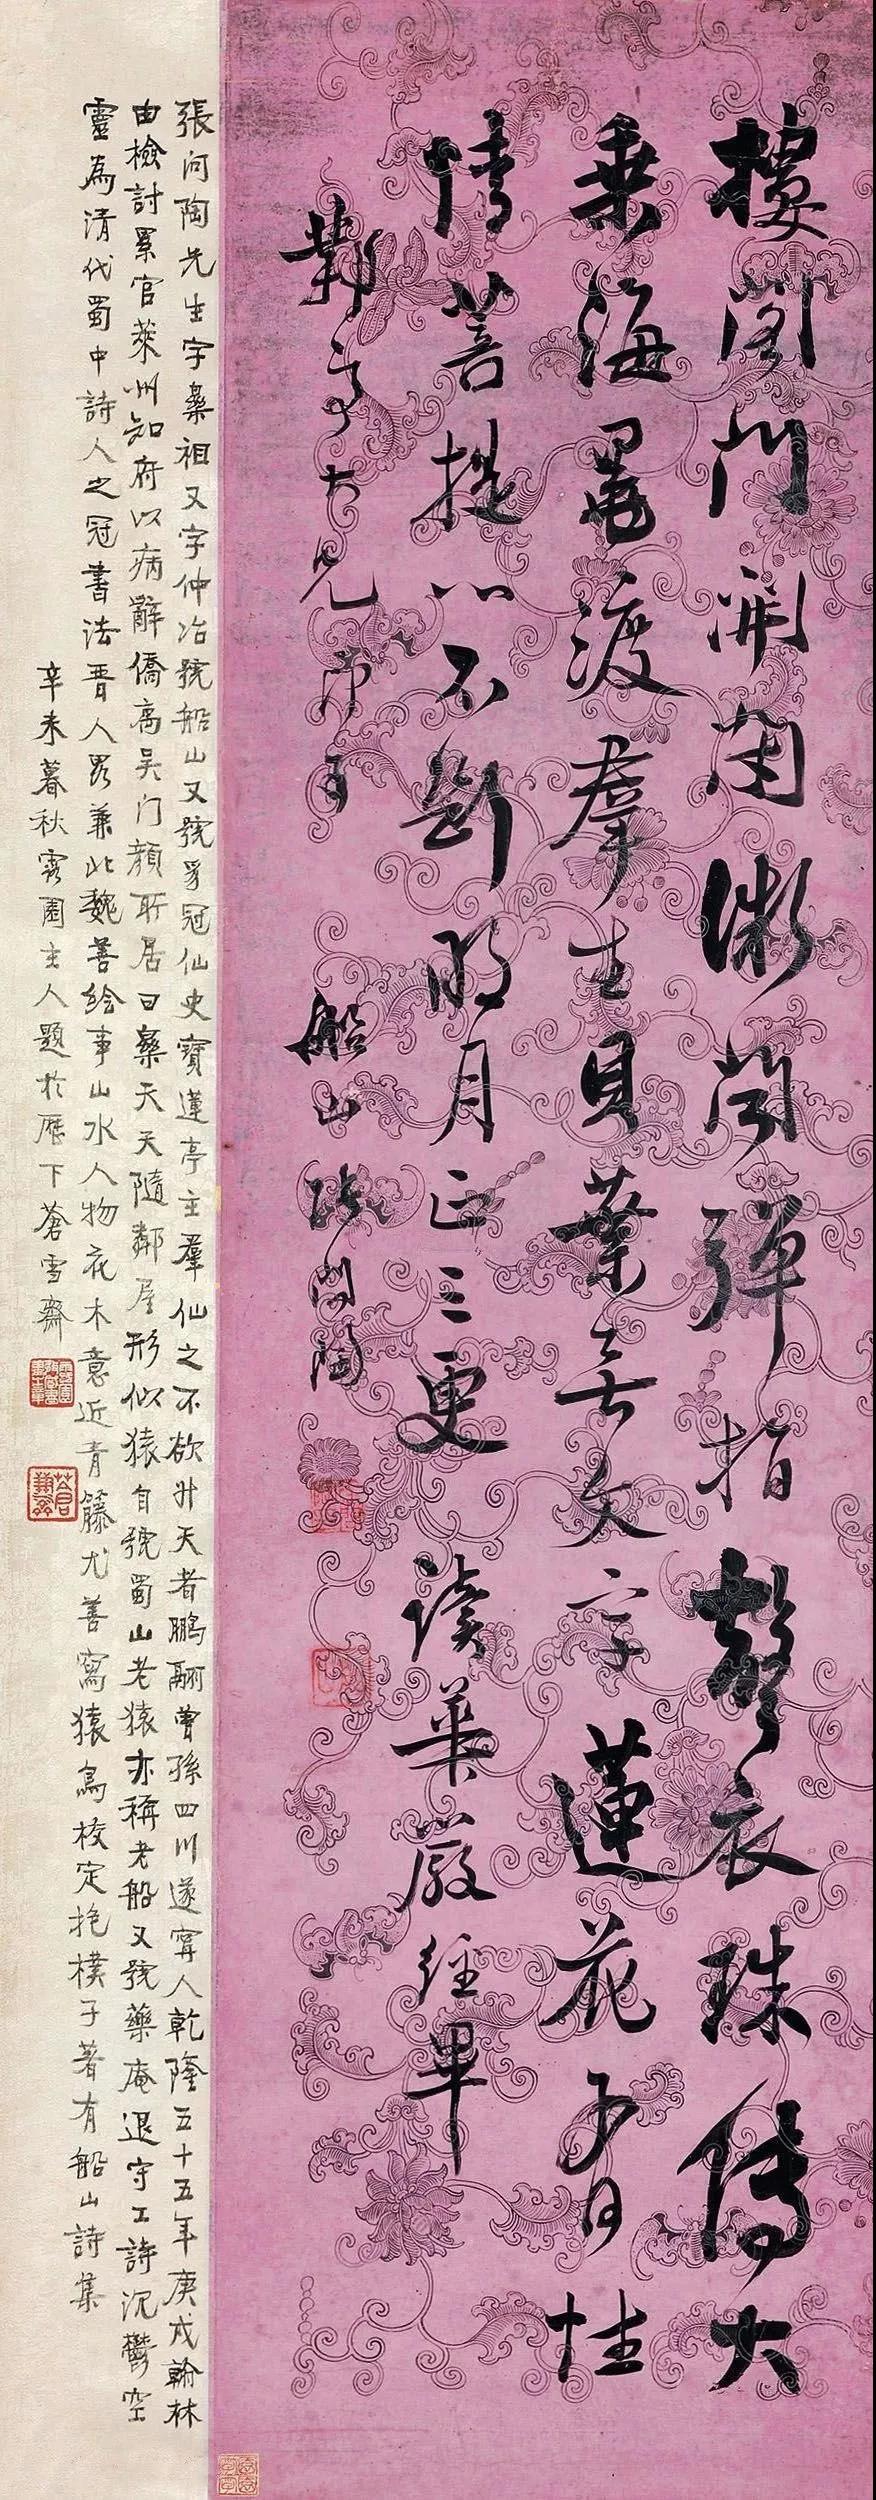 樓閣門開閉微聞彈指聲衣珠傳大
乘海黽渡羣生貝葉無文字蓮花有性
情菩提心不斷明月正三更 讀華嚴經畢
大兄 船山張問陶
張问陶先生字樂祖又字仲冶號船山又號豸冠仙史寶蓮亭主羣仙之不欲升天者鵬翮曾孫四川遂寗人乾隆五十五年庚戌翰林
由檢討累官萊州知府以病辭僑寓吴门顏所居曰樂天天隨鄰屋形似猿自號蜀山老猿亦稱老船又號藥庵退守工詩沉鬱空
靈為清代蜀中詩人之冠書法晋人畧兼北魏善绘事山水人物花木意近青籐尤善寫猿鳥校定抱樸子著有船山詩集
辛未暮秋雲園主人題於歷下蒼雪齋